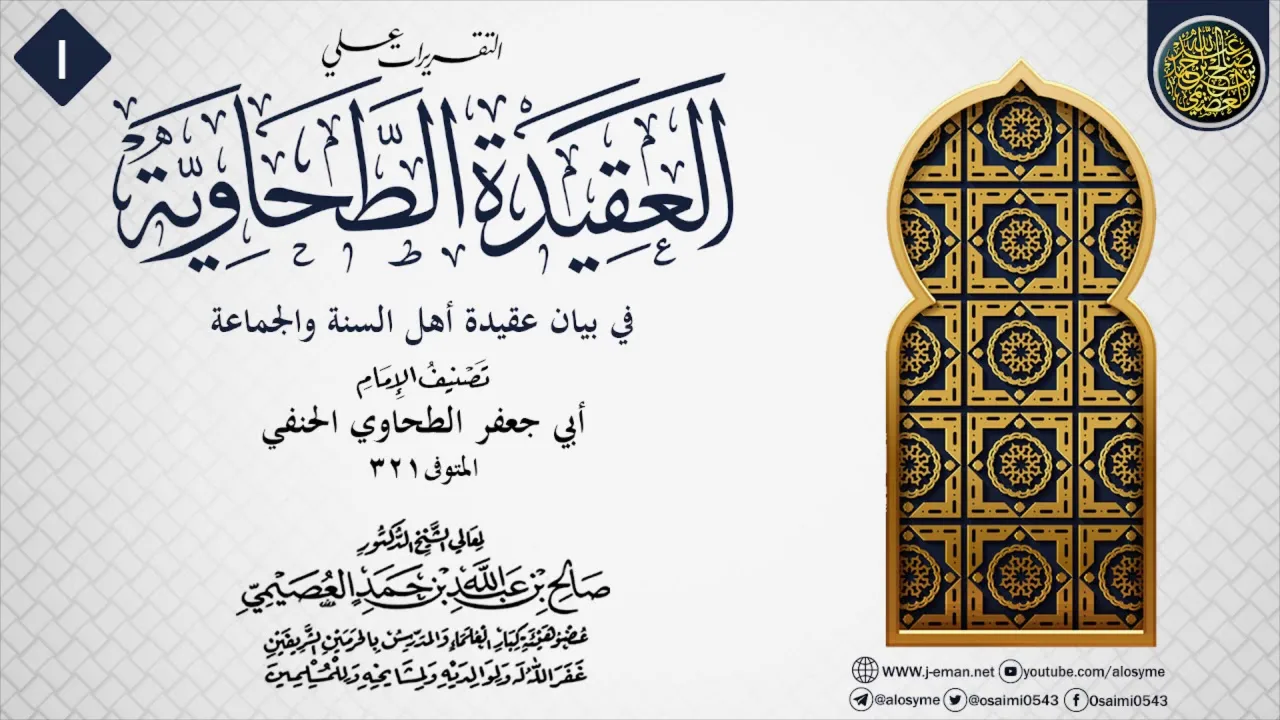 ١
التقريرات على
العَقِيدَةُ الطَّحَاوِيَّةُ
في بيان عقيدة أهل السنة والجماعة
تَصْنِيفُ الإِمَامِ
أبي جعفر الطحاوي الحنفي
المتوفى ٣٢١
لمعالي الشَّيْخِ الدُّكْتُورِ
صَالِحِ بْنِ عَبْدِ اللَّهِ بْنِ حَمَدٍ العُصَيْمِيِّ
عُضْوِ هَيْئَةِ كِبَارِ العُلَمَاءِ وَالمُدَرِّسِ بِالحَرَمَيْنِ الشَّرِيفَيْنِ
غَفَرَ اللَّهُ لَهُ وَلِوَالِدَيْهِ وَلِمَشَايِخِهِ وَلِلْمُسْلِمِينَ
صالح بن عبد الله بن حمد العصيمي
WWW.j-eman.net youtube.com/alosyme
@alosyme @osaimi0543 0saimi0543